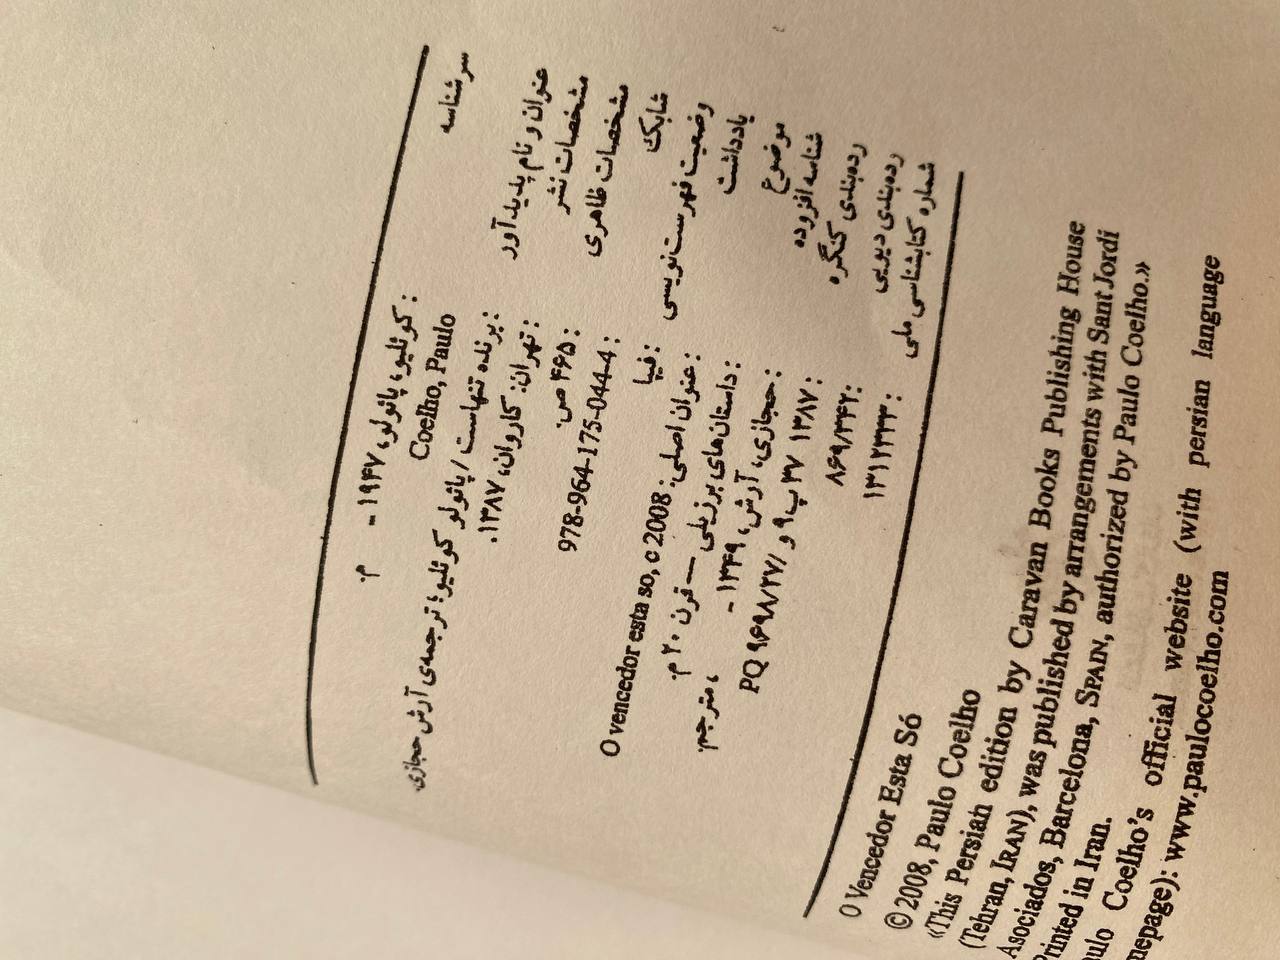 سرشناسه : کوئلیو، پائولو، ۱۹۴۷ - م.
Coelho, Paulo
عنوان و نام پدیدآور : برنده تنهاست / پائولو کوئلیو؛ ترجمه‌ی آرش حجازی.
مشخصات نشر : تهران: کاروان، ۱۳۸۷.
مشخصات ظاهری : ۴۶۵ ص.
شابک : 978-964-175-044-4
وضعیت فهرست‌نویسی : فیپا
یادداشت : عنوان اصلی: O vencedor esta so, c 2008
موضوع : داستان‌های برزیلی — قرن ۲۰ م.
شناسه افزوده : حجازی، آرش، ۱۳۴۹ - ، مترجم.
رده‌بندی کنگره : ۱۳۸۷ ۳۷ پ ۹ و / PQ ۹۶۹۸/۲۷
رده‌بندی دیویی : ۸۶۹/۳۴۲
شماره کتابشناسی ملی : ۱۳۱۲۳۲۳
O Vencedor Esta Só
© 2008, Paulo Coelho
«This Persian edition by Caravan Books Publishing House
(Tehran, IRAN), was published by arrangements with Sant Jordi
Asociados, Barcelona, SPAIN, authorized by Paulo Coelho.»
Printed in Iran.
ulo Coelho's official website (with persian language
mepage): www.paulocoelho.com